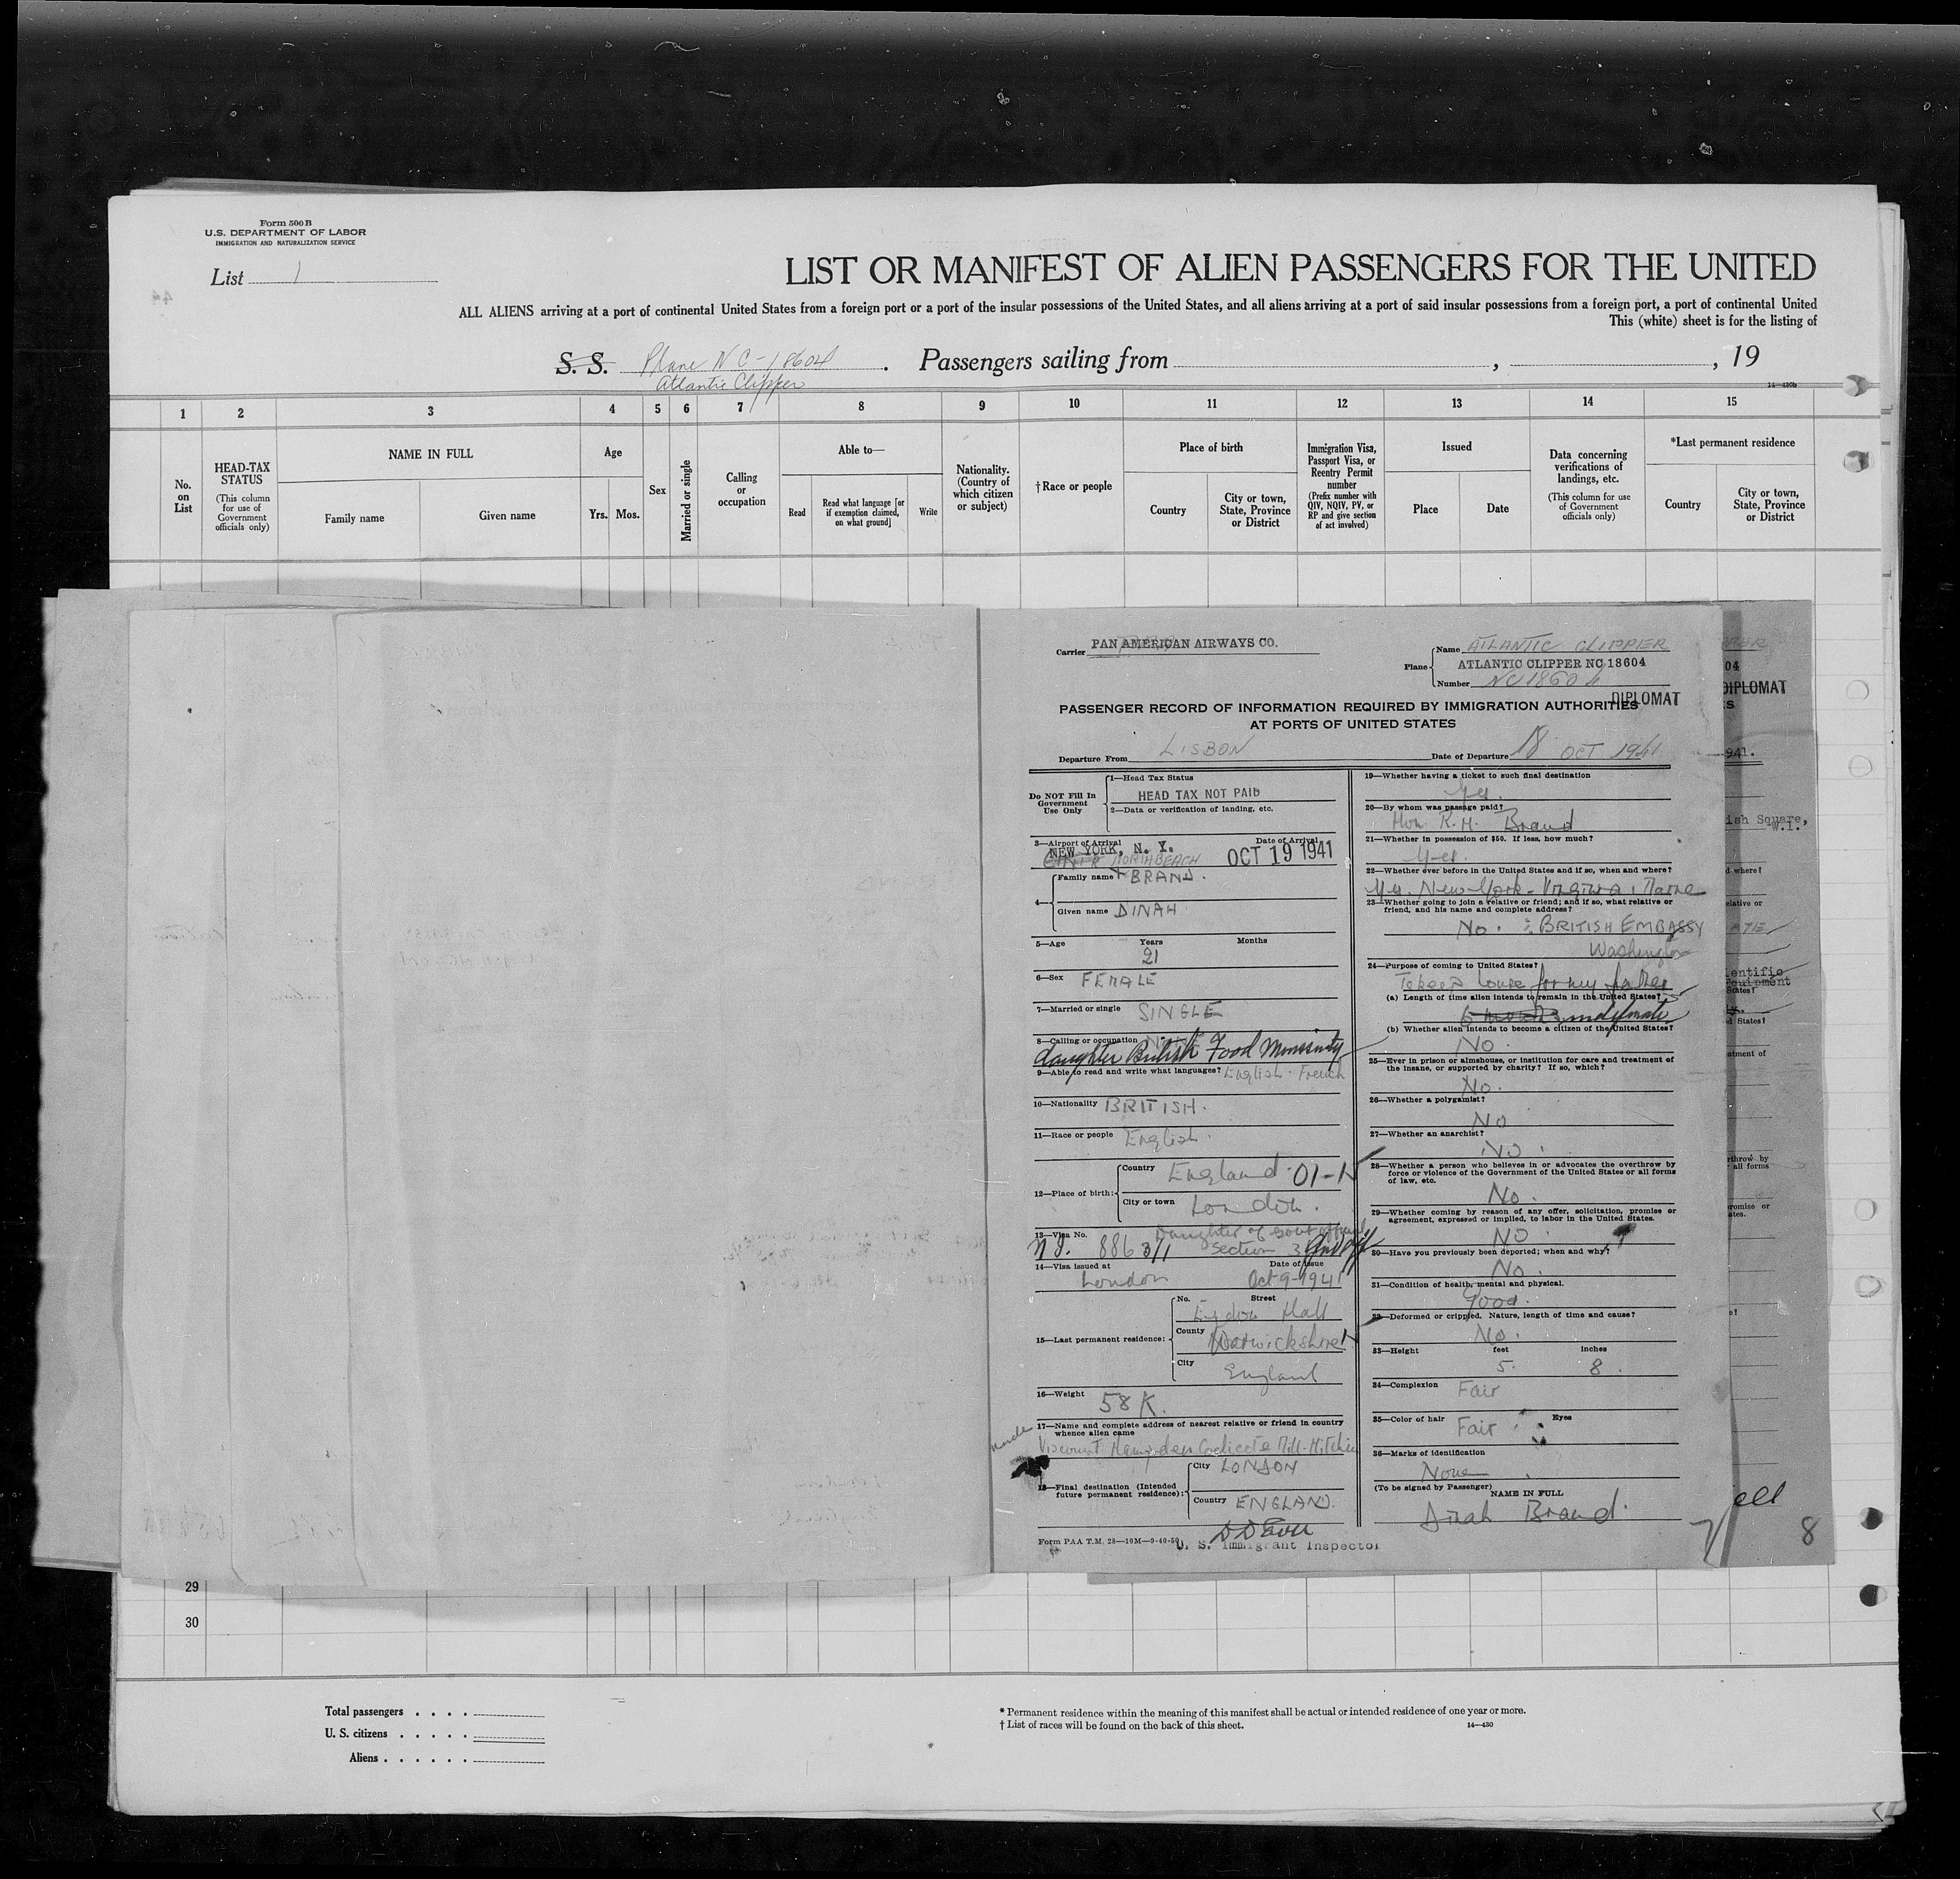 Form 500 B
U.S. DEPARTMENT OF LABOR
IMMIGRATION AND NATURALIZATION SERVICE
List 1
LIST OR MANIFEST OF ALIEN PASSENGERS FOR THE UNITED
ALL ALIENS arriving at a port of continental United States from a foreign port or a port of the insular possessions of the United States, and all aliens arriving at a port of said insular possessions from a foreign port, a port of continental United
This (white) sheet is for the listing of
S. S. Plane NC-18604. Passengers sailing from , , 19
Atlantic Clipper
14—430b
1 2 3 4 5 6 7 8 9 10 11 12 13 14 15
No. on List
HEAD-TAX STATUS
(This column for use of Government officials only)
NAME IN FULL
Family name
Given name
Age
Yrs. Mos.
Sex
Married or single
Calling or occupation
Able to—
Read
Read what language [or if exemption claimed, on what ground]
Write
Nationality. (Country of which citizen or subject)
†Race or people
Place of birth
Country
City or town, State, Province or District
Immigration Visa, Passport Visa, or Reentry Permit number
(Prefix number with QIV, NQIV, PV, or RP and give section of act involved)
Issued
Place
Date
Data concerning verifications of landings, etc.
(This column for use of Government officials only)
*Last permanent residence
Country
City or town, State, Province or District
Carrier PAN AMERICAN AIRWAYS CO.
Plane Name ATLANTIC CLIPPER
ATLANTIC CLIPPER NC 18604
Number NC 18604
DIPLOMAT
PASSENGER RECORD OF INFORMATION REQUIRED BY IMMIGRATION AUTHORITIES
AT PORTS OF UNITED STATES
Departure From LISBON Date of Departure 18 OCT 1941
Do NOT Fill In Government Use Only
1—Head Tax Status
HEAD TAX NOT PAID
2—Data or verification of landing, etc.
3—Airport of Arrival Date of Arrival
NEW YORK, N. Y. OCT 19 1941
NORTH BEACH
4— Family name BRAND.
Given name DINAH
5—Age Years Months
21
6—Sex FEMALE
7—Married or single SINGLE
8—Calling or occupation
daughter British Food
9—Able to read and write what languages? English. French
10—Nationality BRITISH.
11—Race or people English.
12—Place of birth: Country England 01-
City or town London.
13—Visa No. Daughter of Govt official
886 3/1 Section 3
14—Visa issued at Date of Issue
London Oct 9-1941
15—Last permanent residence: No. Street
Hall
County Warwickshire
City
England
16—Weight 58 K.
17—Name and complete address of nearest relative or friend in country whence alien came
Uncle
Viscount Hampden Codicote Mill-Hitchin
18—Final destination (Intended future permanent residence): City LONDON
Country ENGLAND.
Form PAA T.M. 28—10M—9-40-50
U. S. Immigrant Inspector
19—Whether having a ticket to such final destination
Yes.
20—By whom was passage paid?
Hon R.H. Brand
21—Whether in possession of $50. If less, how much?
Yes.
22—Whether ever before in the United States and if so, when and where?
Yes. New York - Virginia, Maine
23—Whether going to join a relative or friend; and if so, what relative or friend, and his name and complete address?
No. : BRITISH EMBASSY
Washington
24—Purpose of coming to United States?
To keep house for my father
(a) Length of time alien intends to remain in the United States?
6 months indefinite
(b) Whether alien intends to become a citizen of the United States?
No.
25—Ever in prison or almshouse, or institution for care and treatment of the insane, or supported by charity? If so, which?
No.
26—Whether a polygamist?
No
27—Whether an anarchist?
No.
28—Whether a person who believes in or advocates the overthrow by force or violence of the Government of the United States or all forms of law, etc.
No.
29—Whether coming by reason of any offer, solicitation, promise or agreement, expressed or implied, to labor in the United States.
NO.
30—Have you previously been deported; when and why?
No.
31—Condition of health, mental and physical.
Good.
32—Deformed or crippled. Nature, length of time and cause?
No.
33—Height feet inches
5. 8.
34—Complexion Fair
35—Color of hair Fair Eyes
36—Marks of identification
None
(To be signed by Passenger)
NAME IN FULL
Dinah Brand.
04
DIPLOMAT
941.
ish Square,
W.1.
ell
8
29
30
Total passengers
U. S. citizens
Aliens
* Permanent residence within the meaning of this manifest shall be actual or intended residence of one year or more.
† List of races will be found on the back of this sheet. 14—430